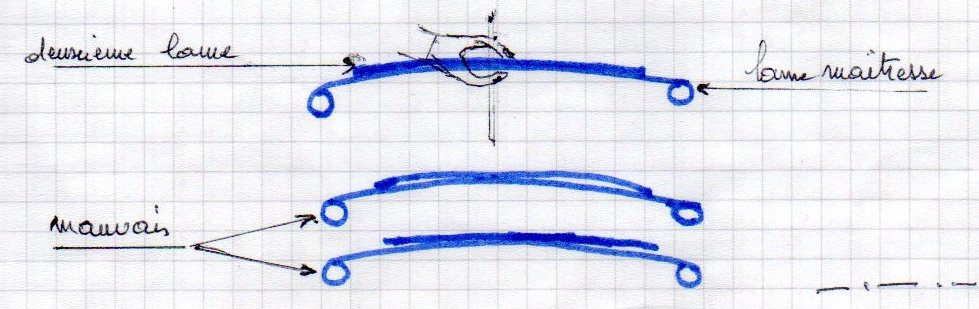 deuxième lame
lame maîtresse
mauvais